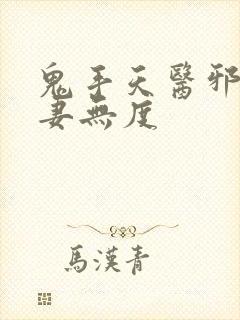 鬼手天醫邪
妻無度
馬漢青